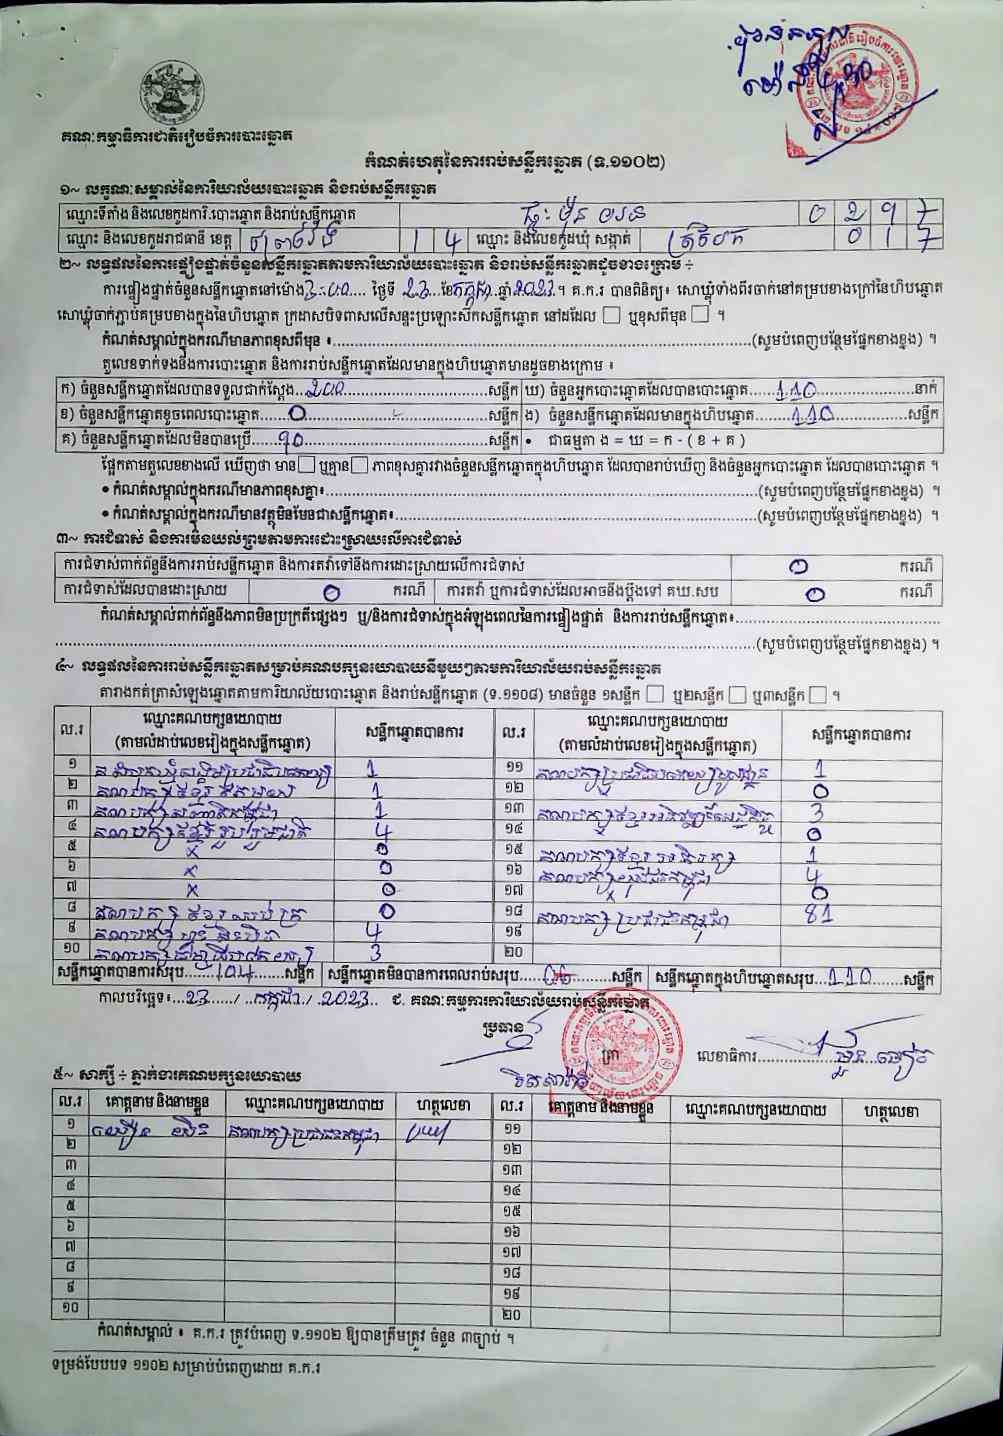 គណៈកម្មាធិការជាតិរៀបចំការបោះឆ្នោត
កំណត់ហេតុនៃការរាប់សន្លឹកឆ្នោត (ទ.១១០២)
១~ លក្ខណៈសម្គាល់នៃការិយាល័យបោះឆ្នោត និងរាប់សន្លឹកឆ្នោត
ឈ្មោះទីតាំង និងលេខកូដការិ.បោះឆ្នោត និងរាប់សន្លឹកឆ្នោត 0 2 9 7
ឈ្មោះ និងលេខកូដរាជធានី ខេត្ត ព្រៃវែង 1 4 ឈ្មោះ និងលេខកូដឃុំ សង្កាត់ 0 1 7
២~ លទ្ធផលនៃការផ្ទៀងផ្ទាត់ចំនួនសន្លឹកឆ្នោតតាមការិយាល័យបោះឆ្នោត និងរាប់សន្លឹកឆ្នោតដូចខាងក្រោម ÷
ការផ្ទៀងផ្ទាត់ចំនួនសន្លឹកឆ្នោតនៅម៉ោង 3:00 ថ្ងៃទី 23 ខែ កក្កដា ឆ្នាំ 2023។ គ.ក.រ បានពិនិត្យ៖ សោឃ្លុំទាំងពីរចាក់នៅគម្របខាងក្រៅនៃហិបឆ្នោត
សោឃ្លុំចាក់ភ្ជាប់គម្របខាងក្នុងនៃហិបឆ្នោត ក្រដាសបិទពាសលើសន្ទះប្រឡោះស៊កសន្លឹកឆ្នោត នៅដដែល □ ឬខុសពីមុន □ ។
កំណត់សម្គាល់ក្នុងករណីមានភាពខុសពីមុន ៖ (សូមបំពេញបន្ថែមផ្នែកខាងខ្នង) ។
តួលេខទាក់ទងនឹងការបោះឆ្នោត និងការរាប់សន្លឹកឆ្នោតដែលមានក្នុងហិបឆ្នោតមានដូចខាងក្រោម ៖
ក) ចំនួនសន្លឹកឆ្នោតដែលបានទទួលជាក់ស្តែង 200 សន្លឹក ឃ) ចំនួនអ្នកបោះឆ្នោតដែលបានបោះឆ្នោត 110 នាក់
ខ) ចំនួនសន្លឹកឆ្នោតខូចពេលបោះឆ្នោត 0 សន្លឹក ង) ចំនួនសន្លឹកឆ្នោតដែលមានក្នុងហិបឆ្នោត 110 សន្លឹក
គ) ចំនួនសន្លឹកឆ្នោតដែលមិនបានប្រើ 90 សន្លឹក • ជាធម្មតា ង = ឃ = ក - ( ខ + គ )
ផ្អែកតាមតួលេខខាងលើ ឃើញថា មាន □ ឬគ្មាន □ ភាពខុសគ្នារវាងចំនួនសន្លឹកឆ្នោតក្នុងហិបឆ្នោត ដែលបានរាប់ឃើញ និងចំនួនអ្នកបោះឆ្នោត ដែលបានបោះឆ្នោត ។
• កំណត់សម្គាល់ក្នុងករណីមានភាពខុសគ្នា៖ (សូមបំពេញបន្ថែមផ្នែកខាងខ្នង) ។
• កំណត់សម្គាល់ក្នុងករណីមានវត្ថុមិនមែនជាសន្លឹកឆ្នោត៖ (សូមបំពេញបន្ថែមផ្នែកខាងខ្នង) ។
៣~ ការជំទាស់ និងការមិនយល់ព្រមតាមការដោះស្រាយលើការជំទាស់
ការជំទាស់ពាក់ព័ន្ធនឹងការរាប់សន្លឹកឆ្នោត និងការតវ៉ាទៅនឹងការដោះស្រាយលើការជំទាស់ 0 ករណី
ការជំទាស់ដែលបានដោះស្រាយ 0 ករណី ការតវ៉ា ឬការជំទាស់ដែលអាចនឹងប្តឹងទៅ គឃ.សប 0 ករណី
កំណត់សម្គាល់ពាក់ព័ន្ធនឹងភាពមិនប្រក្រតីផ្សេងៗ ឬ/និងការជំទាស់ក្នុងអំឡុងពេលនៃការផ្ទៀងផ្ទាត់ និងការរាប់សន្លឹកឆ្នោត៖
(សូមបំពេញបន្ថែមផ្នែកខាងខ្នង) ។
៤~ លទ្ធផលនៃការរាប់សន្លឹកឆ្នោតសម្រាប់គណបក្សនយោបាយនីមួយៗតាមការិយាល័យរាប់សន្លឹកឆ្នោត
តារាងកត់ត្រាសំឡេងឆ្នោតតាមការិយាល័យបោះឆ្នោត និងរាប់សន្លឹកឆ្នោត (ទ.១១០៨) មានចំនួន ១សន្លឹក □ ឬ២សន្លឹក □ ឬ៣សន្លឹក □ ។
ល.រ ឈ្មោះគណបក្សនយោបាយ (តាមលំដាប់លេខរៀងក្នុងសន្លឹកឆ្នោត) សន្លឹកឆ្នោតបានការ ល.រ ឈ្មោះគណបក្សនយោបាយ (តាមលំដាប់លេខរៀងក្នុងសន្លឹកឆ្នោត) សន្លឹកឆ្នោតបានការ
១ 1 ១១ 1
២ 1 ១២ 0
៣ 1 ១៣ 3
៤ គណបក្សខ្មែររួបរួមជាតិ 4 ១៤ 0
៥ x 0 ១៥ 1
៦ x 0 ១៦ 4
៧ x 0 ១៧ x 0
៨ 0 ១៨ គណបក្សប្រជាជនកម្ពុជា 81
៩ 4 ១៩
១០ 3 ២០
សន្លឹកឆ្នោតបានការសរុប 104 សន្លឹក សន្លឹកឆ្នោតមិនបានការពេលរាប់សរុប 06 សន្លឹក សន្លឹកឆ្នោតក្នុងហិបឆ្នោតសរុប 110 សន្លឹក
កាលបរិច្ឆេទ៖ 23 / កក្កដា / 2023 ជ. គណៈកម្មការការិយាល័យរាប់សន្លឹកឆ្នោត
ប្រធាន ត្រា លេខាធិការ
៥~ សាក្សី ÷ ភ្នាក់ងារគណបក្សនយោបាយ
ល.រ គោត្តនាម និងនាមខ្លួន ឈ្មោះគណបក្សនយោបាយ ហត្ថលេខា ល.រ គោត្តនាម និងនាមខ្លួន ឈ្មោះគណបក្សនយោបាយ ហត្ថលេខា
១ គណបក្សប្រជាជនកម្ពុជា ១១
២ ១២
៣ ១៣
៤ ១៤
៥ ១៥
៦ ១៦
៧ ១៧
៨ ១៨
៩ ១៩
១០ ២០
កំណត់សម្គាល់ ៖ គ.ក.រ ត្រូវបំពេញ ទ.១១០២ ឱ្យបានត្រឹមត្រូវ ចំនួន ៣ច្បាប់ ។
ទម្រង់បែបបទ ១១០២ សម្រាប់បំពេញដោយ គ.ក.រ